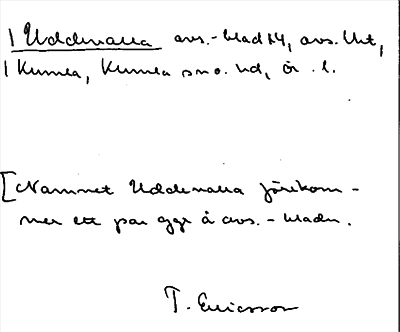 | Uddevalla avs.-blad 14, avs. Utt,
| Kumla, Kumla sn o. hd, ör. l.
[Namnet Uddevalla förekom-
mer ett par ggr å avs.-bladen.
T. Ericsson